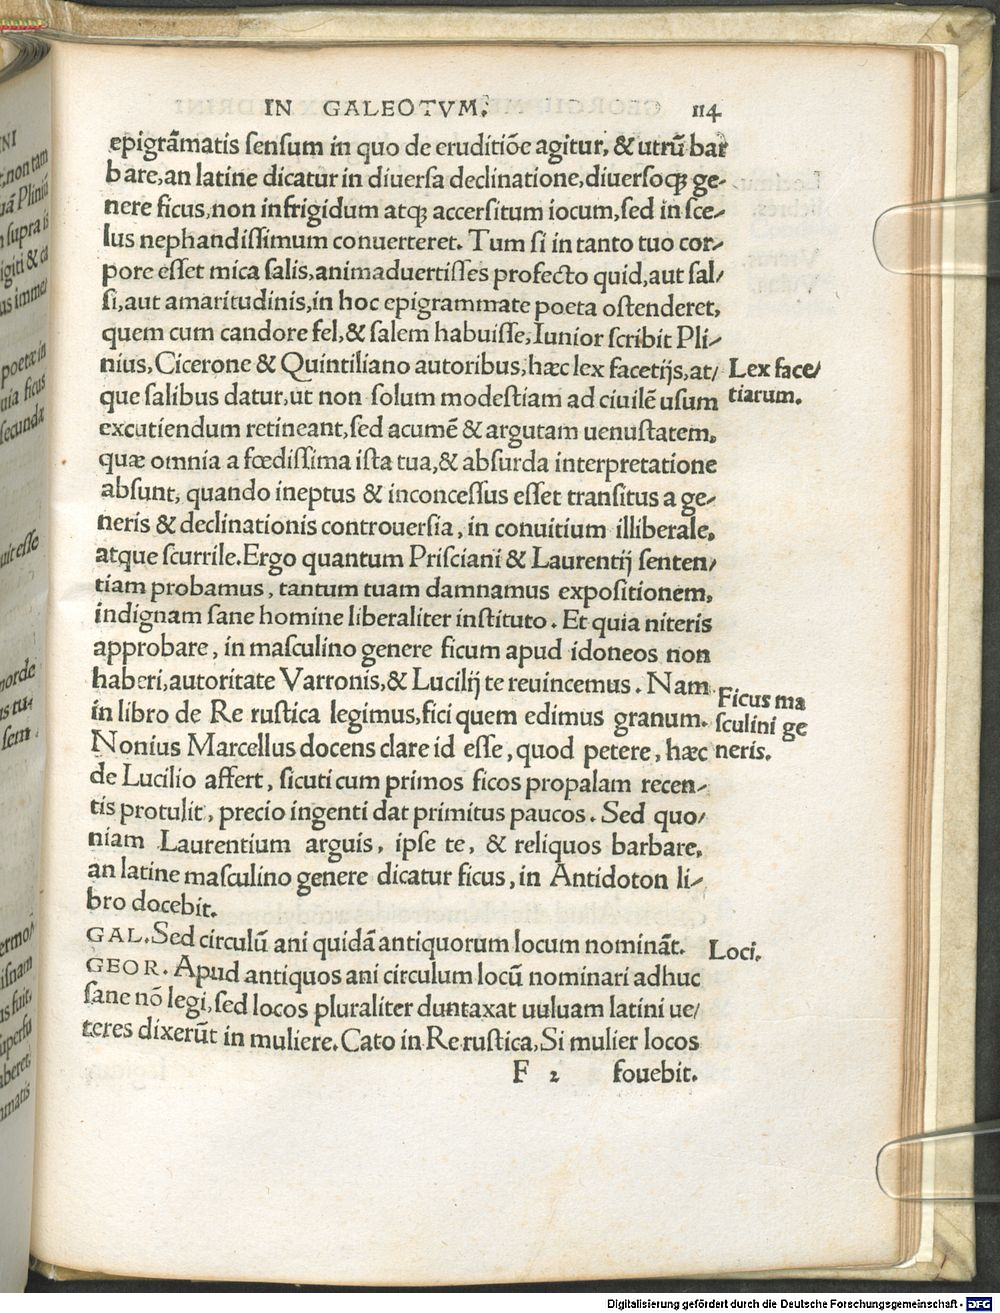 IN GALEOTVM. 114
epigrãmatis ſenſum in quo de eruditiõe agitur, & utrũ bar
bare, an latine dicatur in diuerſa declinatione, diuerſoq; ge-
nere ficus, non infrigidum atq; accerſitum iocum, ſed in ſce-
lus nephandiſſimum conuerteret. Tum ſi in tanto tuo cor-
pore eſſet mica ſalis, animaduertiſſes profecto quid, aut ſal/
ſi, aut amaritudinis, in hoc epigrammate poeta oſtenderet,
quem cum candore fel, & ſalem habuiſſe, Iunior ſcribit Pli-
nius, Cicerone & Quintiliano autoribus, hæc lex facetijs, at/
Lex face/
que ſalibus datur, ut non ſolum modeſtiam ad ciuilẽ uſum
tiarum.
excutiendum retineant, ſed acumẽ & argutam uenuſtatem,
quæ omnia a fœdiſſima iſta tua, & abſurda interpretatione
abſunt, quando ineptus & inconceſſus eſſet tranſitus a ge-
neris & declinationis controuerſia, in conuitium illiberale,
atque ſcurrile. Ergo quantum Priſciani & Laurentij ſenten/
tiam probamus, tantum tuam damnamus expoſitionem,
indignam ſane homine liberaliter inſtituto. Et quia niteris
approbare, in maſculino genere ficum apud idoneos non
haberi, autoritate Varronis, & Lucilij te reuincemus. Nam
Ficus ma
in libro de Re ruſtica legimus, fici quem edimus granum.
ſculini ge
Nonius Marcellus docens clare id eſſe, quod petere, hæc
neris.
de Lucilio affert, ſicuti cum primos ficos propalam recen-
tis protulit, precio ingenti dat primitus paucos. Sed quo/
niam Laurentium arguis, ipſe te, & reliquos barbare,
an latine maſculino genere dicatur ficus, in Antidoton li-
bro docebit.
GAL. Sed circulũ ani quidã antiquorum locum nominãt.
Loci.
GEOR. Apud antiquos ani circulum locũ nominari adhuc
ſane nõ legi, ſed locos pluraliter duntaxat uuluam latini ue/
teres dixerũt in muliere. Cato in Re ruſtica, Si mulier locos
F 2 fouebit.
Digitalisierung gefördert durch die Deutsche Forschungsgemeinschaft - DFG